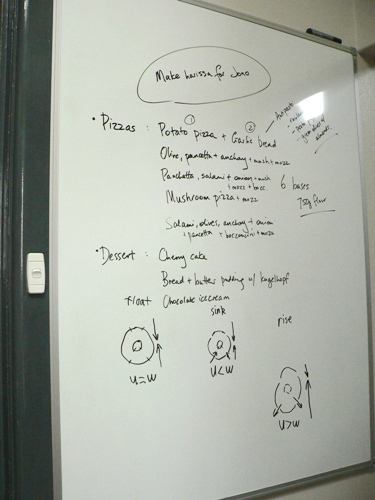 Make harissa for Jono
• Pizzas : Potato pizza + Garlic bread
1
2
Antipasto
Olive, pancetta + anchovy + mush + mozz
Pancetta, salami + onion + mush
+ mozz + bocc.
6 bases
Mushroom pizza + mozz
750g flour
Salami, olives, anchovy + onion
+ pancetta + bocconcini + mozz
• Dessert : Cherry cake
Bread + butter pudding w/ kugelhopf
Chocolate icecream
float
sink
rise
U = W
U < W
U > W